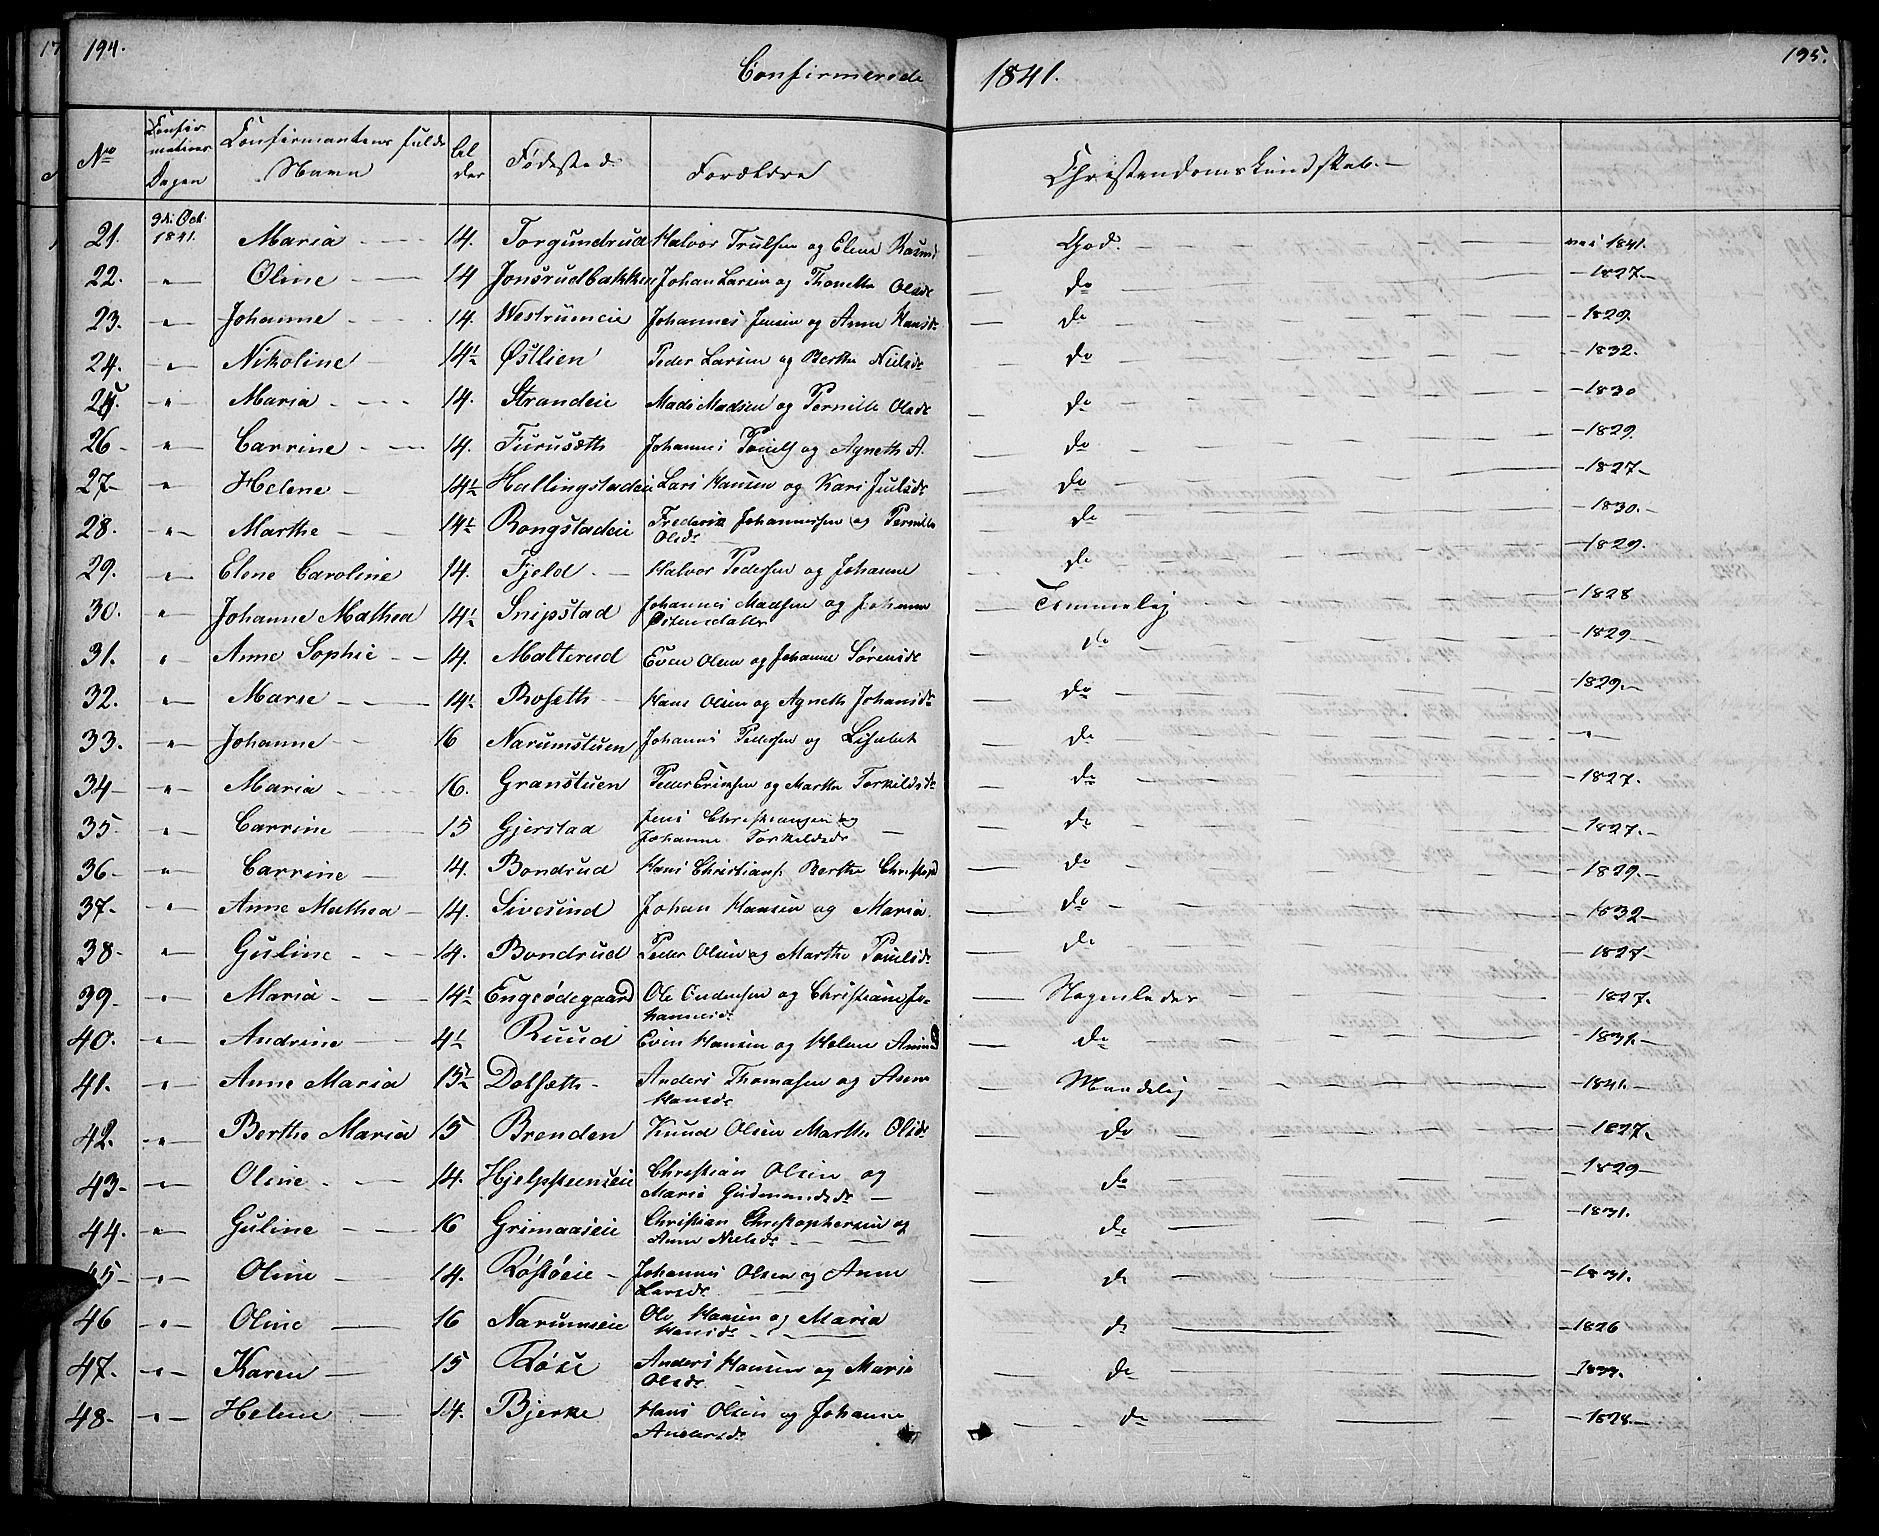 17
194.
195.
Confirmerede 1841.
No Confirmations Dagen Confirmantens fulde Navn Al der Fødested Forældre Christendomskundskab. —
21. 9de Oct. 1841. Maria 14. Torgundrud Halvor Trulsen og Elene Rasmd God. vac 1841.
22. " Oline 14 Jonsrudbakken Johan Larsen og Thonette Olsdr do 1827
23. " Johanne 14. Westrumeie Johannes Jensen og Anne Hansdr do 1829
24. " Nikoline 14½ Østlien Peder Larsen og Berthe Nielsdr do 1832.
25. " Maria 14. Strandeie Mads Madsen og Pernille Olsdr do 1830
26 " Carrine 14. Furuseth Johannes Pouels og Agnethe A. do 1829.
27 " Helene 14½ Hallingstadeie Lars Hansen og Kari Juulsdr do 1827
28. " Marthe 14½ Rongstadeie Frederik Johannessen og Pernille Olsdr do 1830.
29. " Elene Caroline 14. Fjeld Halvor Pedersen og Johanne do 1829.
30. " Johanne Mathea 14½ Snipstad Johannes Madsen og Johanne Temmelig 1828
31. " Anne Sophie 14. Malterud Even Olsen og Johanne Sørensdr do 1829
32. " Marie 14½ Roseth Hans Olsen og Agnethe Johansdr do 1829.
33. " Johanne 16 Narumstuen Johannes Pedersen og Lisabet do "
34 " Maria 16. Granstuen Peder Eriksen og Marthe Torkildsdr do 1827.
35. " Carrine 15 Gjerstad Jens Christiansen og Johanne Torkeldsdr do 1827.
36 " Carrine 14. Bondrud Hans Christians. Berthe Christopd do 1829.
37. " Anne Mathea 14. Sivesind Johan Hansen og Maria. do 1832
38. " Guline 14. Bondrud Peder Olsen og Marthe Pouelsdr do 1827
39. " Maria 14½ Engeødegaard Ole Endresen og Christiane Jo- hannesdr Nogenledes 1827.
40. " Andrine 4½ Ruud Even Hansen og Helene Amund do 1831.
41. " Anne Maria 15½ Dolsæth Anders Thomasen og Anne Hansdr Maadelig 1841.
42. " Berthe Maria 15 Brenden Knud Olsen Marthe Olsdr do 1827.
43. " Oline 14. Hjelpsteenseie Christian Olsen og Marie Gudmundsdr do 1829
44. " Guline 16 Grimaaseie Christian Christophersen og Anne Nielsdr do 1831.
45 " Oline 14. Røstøeie Johannes Olsen og Anne Larsdr do 1831.
46 " Oline 16 Narumseie Ole Hansen og Maria Hansdr do 1826
47. " Karen 15 Røise Anders Hansen og Marie Olsdr do
48. " Helene 14. Bjerke Hans Olsen og Johanne Andersdr do 1828.